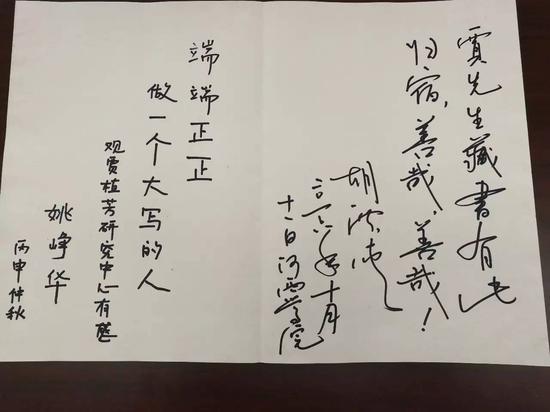 贾先生藏书有此
归宿，善哉，善哉！
胡洪侠
二〇一六年十月
十一日河西学院
端端正正
做一个大写的人
观贾植芳研究中心有感
姚峥华
丙申仲秋